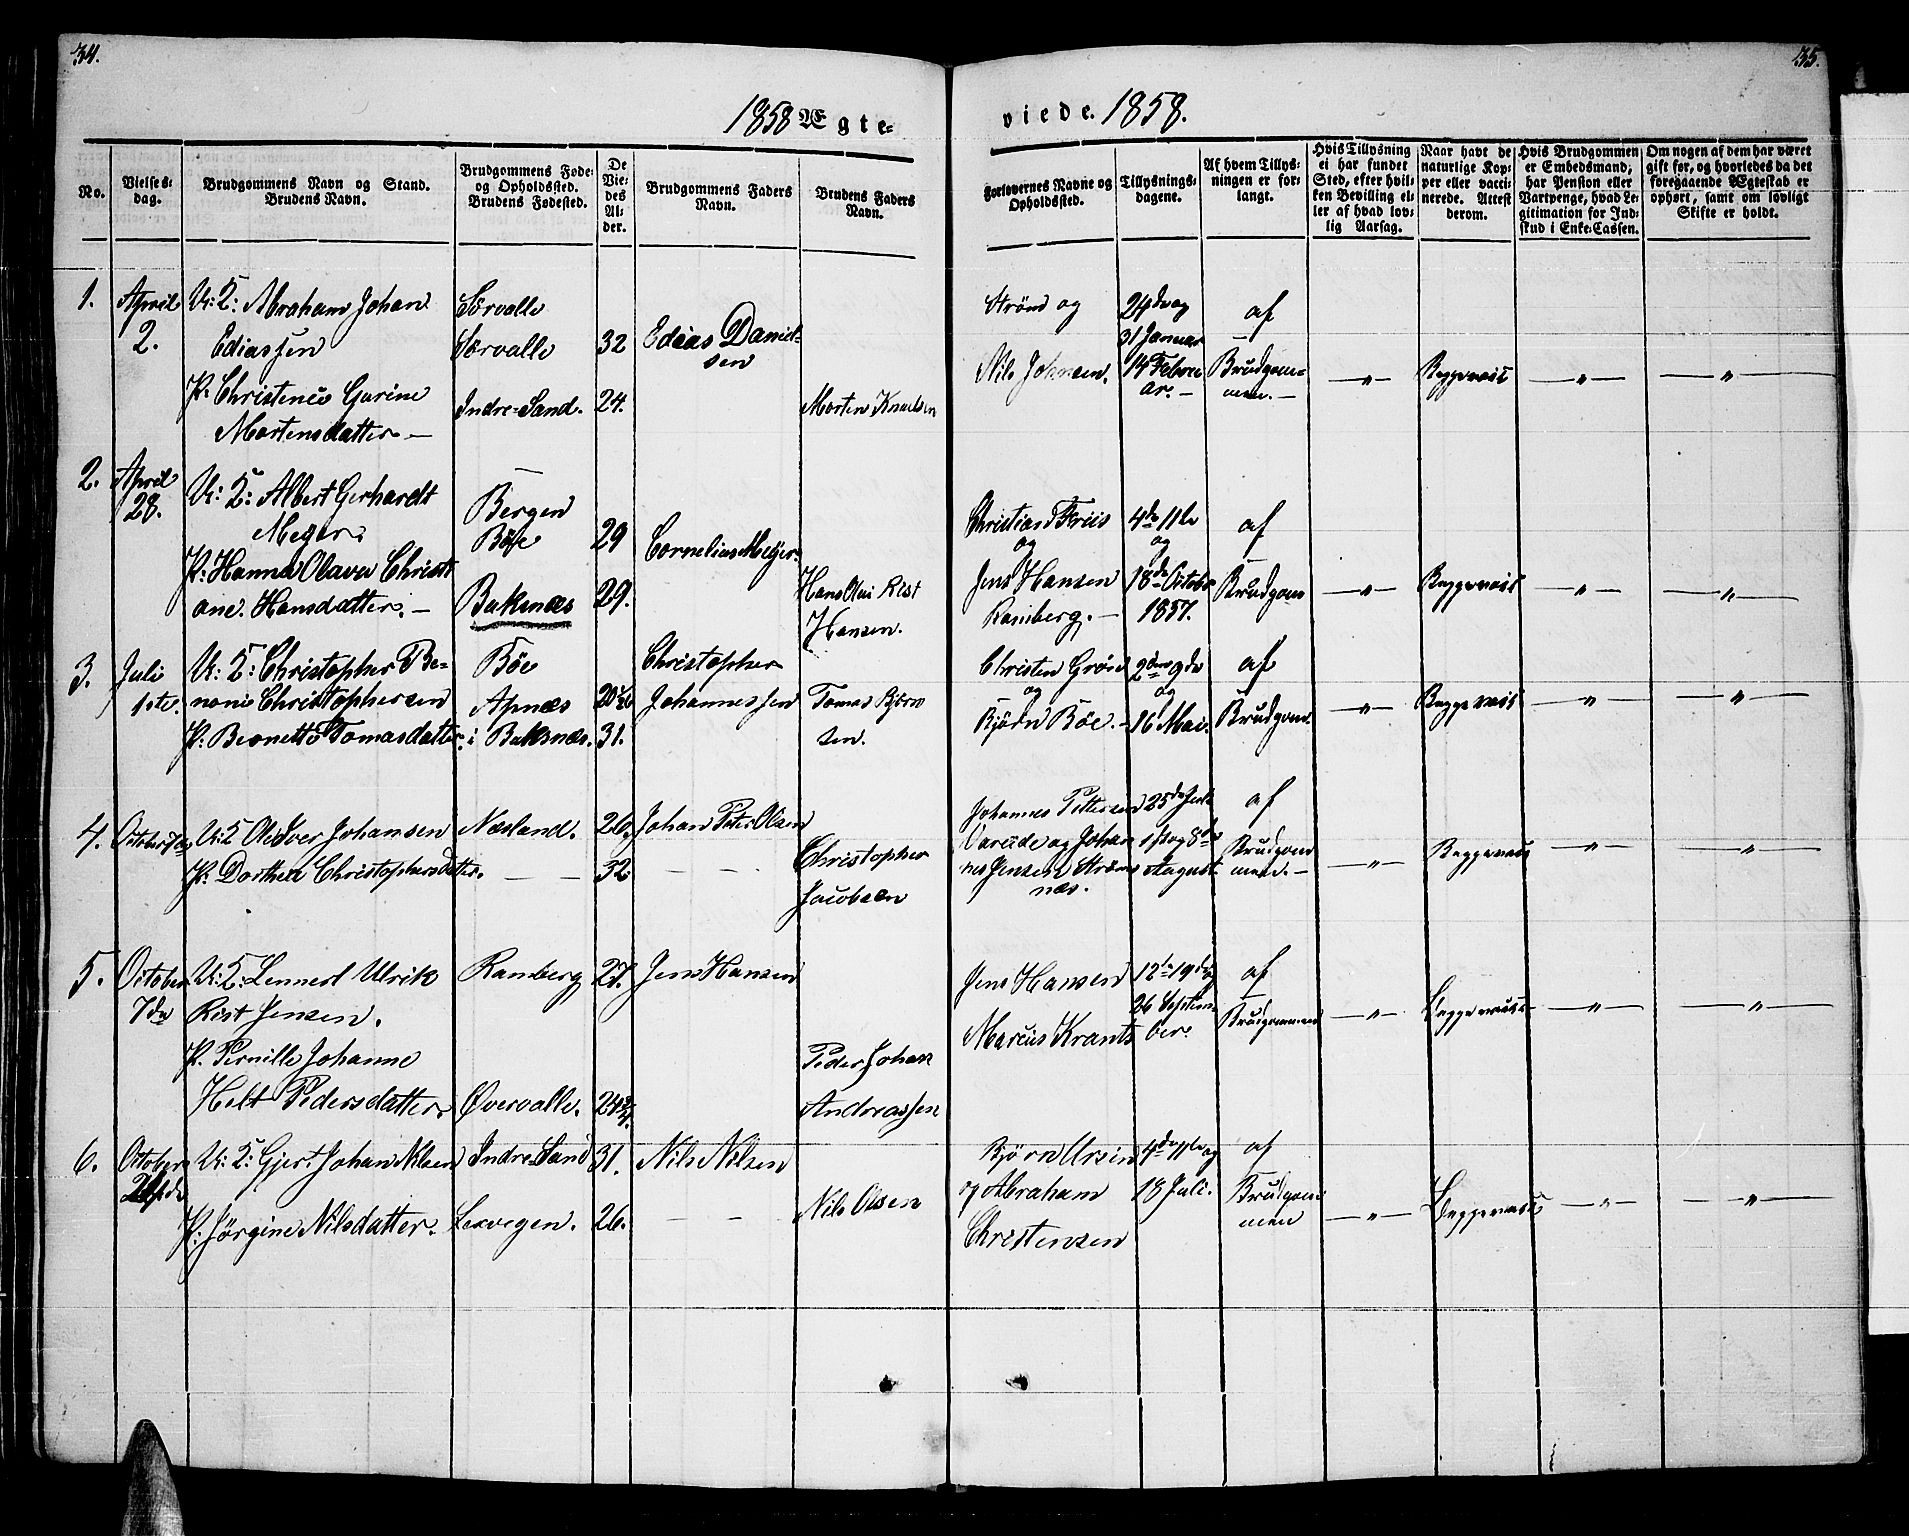 34.
35.
1858 Ægte=
viede. 1858.
No.
Vielses=
dag.
Brudgommens Navn og Stand.
Brudens Navn.
Brudgommens Føde=
og Opholdssted.
Brudens Fødested.
De
Vie=
des
Al=
der.
Brudgommens Faders
Navn.
Brudens Faders
Navn.
Forlovernes Navne og
Opholdssted.
Tillysnings=
dagene.
Af hvem Tillys=
ningen er for=
langt.
Hvis Tillysning
ei har fundet
Sted, efter hvil=
ken Bevilling el=
ler af hvad lov=
lig Aarsag.
Naar havt de
naturlige Kop=
per eller vacci=
nerede. Attest
derom.
Hvis Brudgommen
er Embedsmand,
har Pension eller
Vartpenge, hvad Le=
gitimation for Ind=
skud i Enke=Cassen.
Om nogen af dem har været
gift før, og hvorledes da det
foregaaende Ægtestad er
ophørt, samt om lovligt
Skifte er holdt.
1.
April
2.
Abraham Johan
Ediassen
P: Christense Gurine
Mortensdatter.
Sørvalle
Sørvalle
Indre=Sand.
32
24.
Edias Daniel=
sen
Morten Knudsen
Strønd og
Nils Johnsen.
24de og
31 Januar
14 Febru
ar.
af
Brudgom=
men.
— " —
Beggevacc
— " —
— " —
2.
April
28.
Albert Gerhardt
Meyer.
P: Hanna Olava Christi
ane. Hansdatter.
Bergen
Böe
Buksnæs
29
29.
Cornelius Meyer.
Hans Olai Rist
Hansen.
Christian Friis
og
Jens Hansen
Ramberg.
4de 11te
og
18de Octobr
1857.
af
Brudgom
— " —
Beggevacc
— " —
— " —
3.
Juli
1ste.
Christopher Be=
nonie Christophersen
P: Beonette Tomasdatter.
Böe
Apnæs
i Buksnæs.
31.
Christopher
Johannessen
Tomas Björn
sen.
Christen Grön
og
Bjørn Böe.
2den 9de
og
16 Mai.
af
Brudgom.
— " —
Begge vacc
— " —
— " —
4.
October
Ole Iver Johansen
P: Dorthea Christophersdatter.
Næsland.
26.
32.
Johan Peter Olsen
Christopher
Jacobsen
Johannes Pettersen
og Johan
nes Jensen Strøms
næs.
25de Juli
1ste og 8de
August.
af
Brudgom
men.
— " —
Beggevacc
— " —
— " —
5.
October
7de
Lennert Ulrik
Rist Jensen.
P: Pernille Johanne
Helt Pedersdatter.
Ramberg
Øvervalle.
27.
Jens Hansen
Peder Johan
Andreassen
Jens Hansen
Marcus Krants
12te 19de og
26 Septem=
ber.
af
Brudgommen
— " —
Beggevacc.
— " —
— " —
6.
October
Gjert Johan Nilsen
P: Jörgine Nilsdatter.
Indre=Sand
Lexvegen.
31.
26.
Nils Nilsen
Nils Olsen
Bjørn Ursin
og Abraham
Christensen
4de 11te og
18 Juli.
af
Brudgom
men
— " —
Beggevacc
— " —
— " —